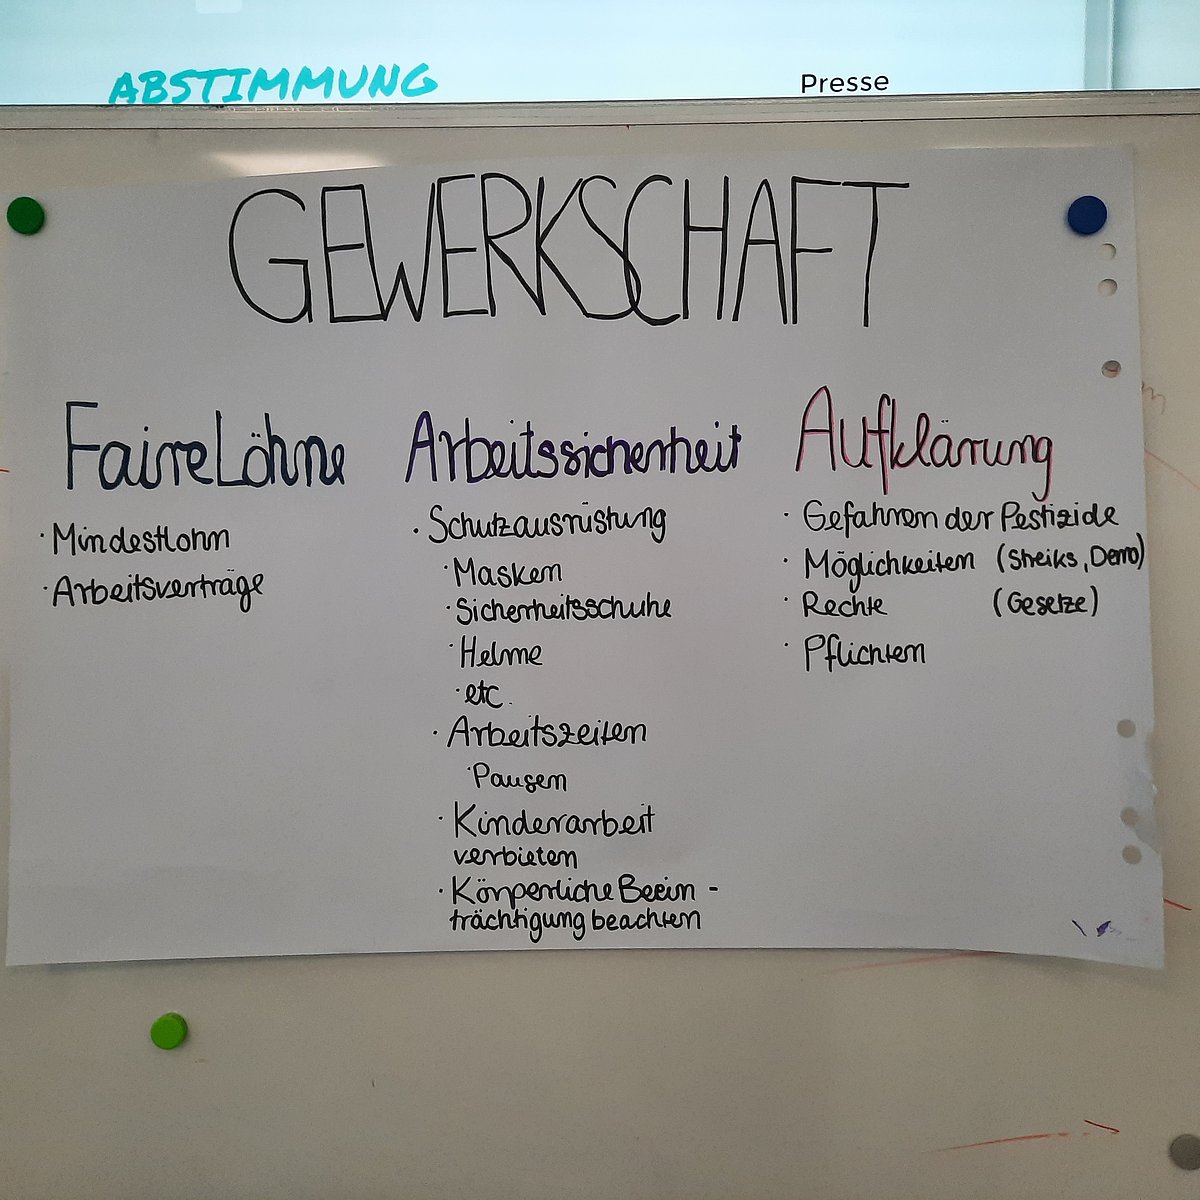 ABSTIMMUNG
Presse
GEWERKSCHAFT
Faire Löhne
· Mindestlohn
· Arbeitsverträge
Arbeitssicherheit
· Schutzausrüstung
· Masken
· Sicherheitsschuhe
· Helme
· etc.
· Arbeitszeiten
· Pausen
· Kinderarbeit
verbieten
· Körperliche Beein-
trächtigung beachten
Aufklärung
· Gefahren der Pestizide
· Möglichkeiten (Streiks, Demo)
· Rechte (Gesetze)
· Pflichten